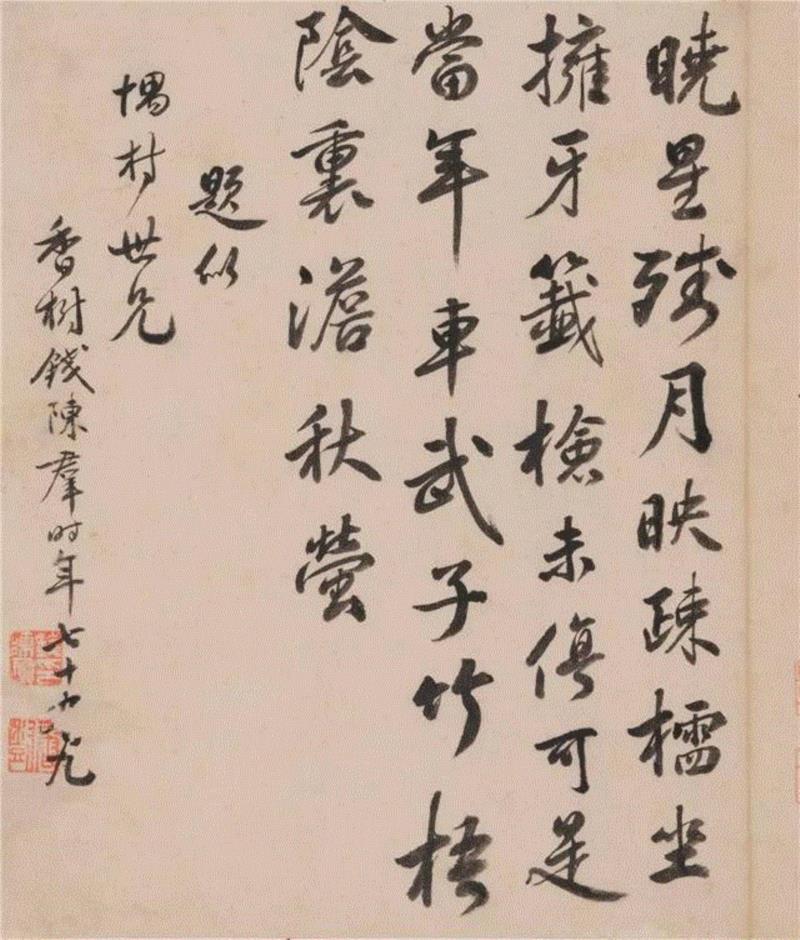 曉星殘月映疎櫺坐
擁牙籤檢未停可是
當年車武子竹梧
陰裏澹秋螢
題似
村世兄
香樹錢陳羣时年七十九